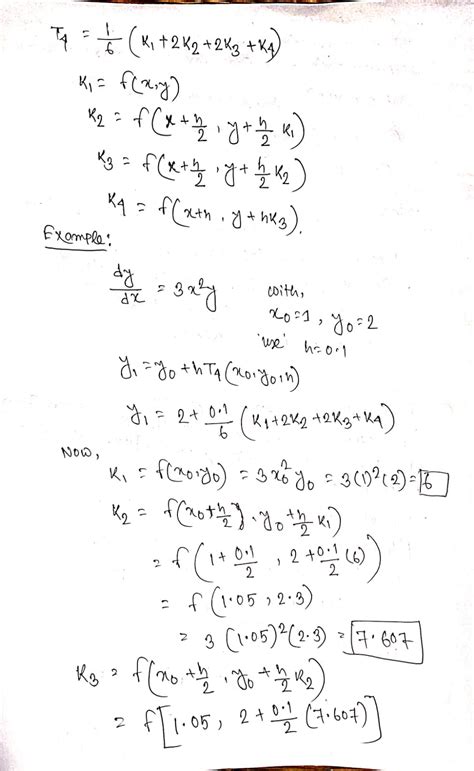 T₄ = 1/6 (K₁ + 2K₂ + 2K₃ + K₄)
K₁ = f(x,y)
K₂ = f(x + h/2 , y + h/2 K₁)
K₃ = f(x + h/2 , y + h/2 K₂)
K₄ = f(x+h , y + hK₃).
Example:
dy/dx = 3x²y with,
x₀=1 , y₀=2
'use' h=0.1
y₁ = y₀ + hT₄(x₀,y₀,h)
y₁ = 2 + 0.1/6 (K₁+2K₂+2K₃+K₄)
Now,
K₁ = f(x₀,y₀) = 3x₀²y₀ = 3(1)²(2) = 6
K₂ = f(x₀+h/2, y₀+h/2 K₁)
= f(1 + 0.1/2 , 2 + 0.1/2 (6))
= f(1.05 , 2.3)
= 3 (1.05)²(2.3) = 7.607
K₃ = f(x₀ + h/2 , y₀ + h/2 K₂)
= f[1.05, 2 + 0.1/2 (7.607)]